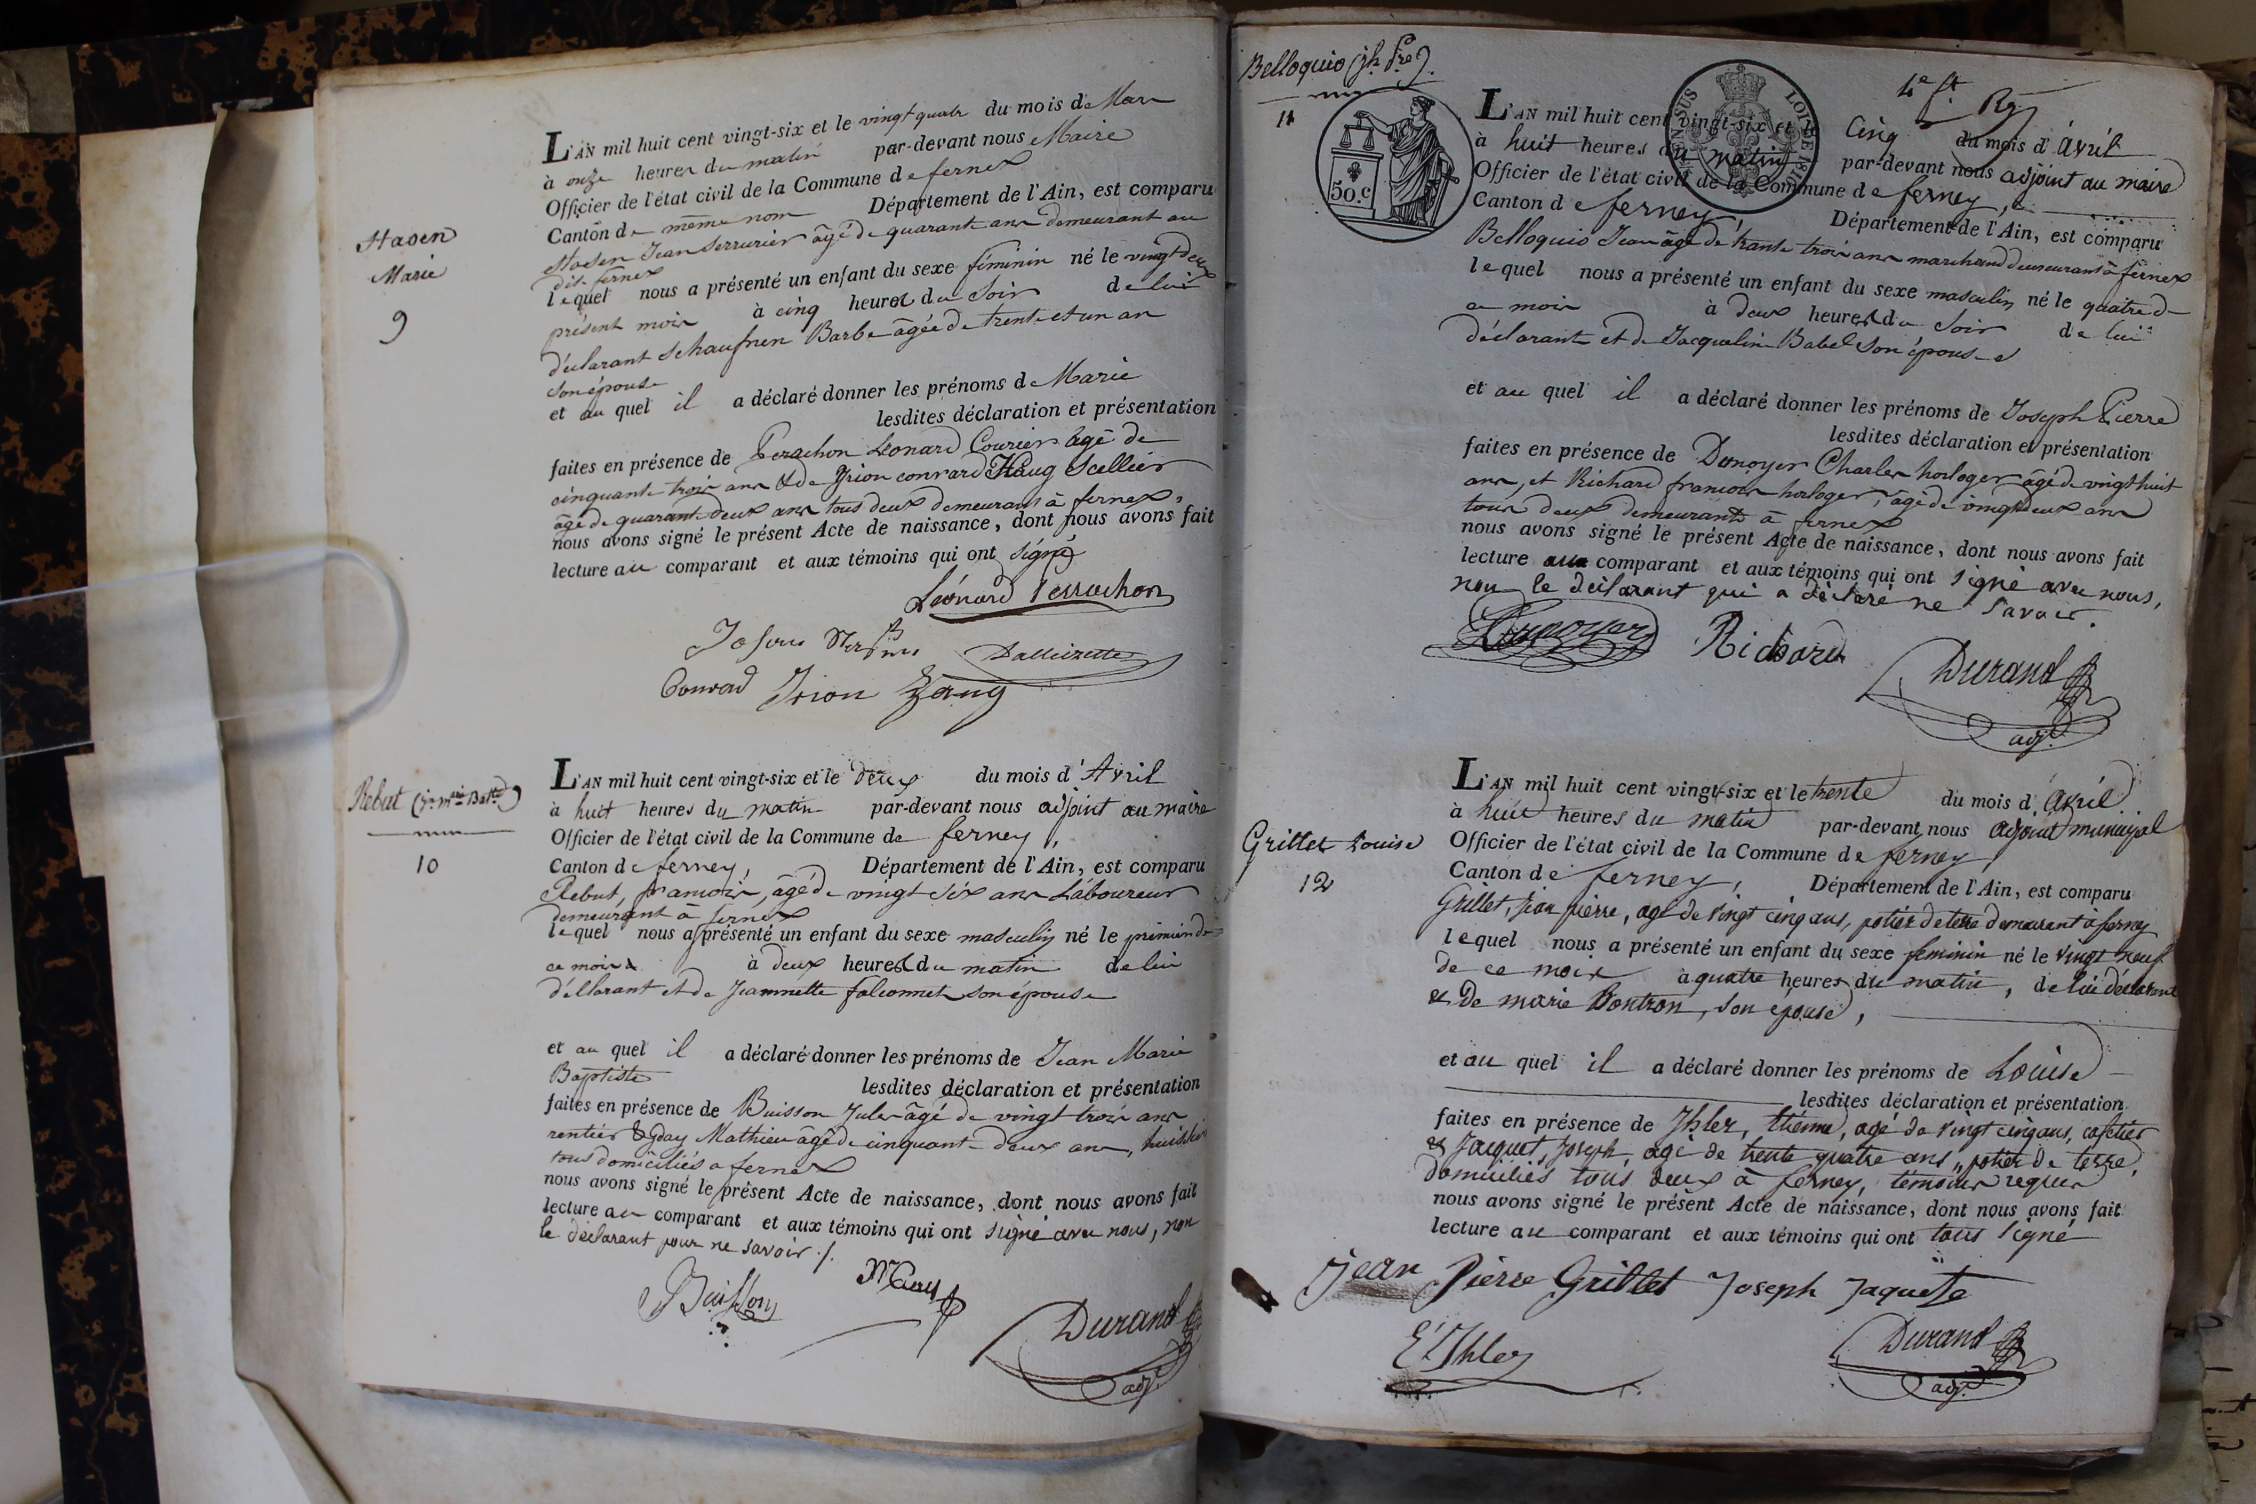 Hasen
Marie
9
L'AN mil huit cent vingt-six et le vingt quatr du mois de Mars
à onze heures du matin par-devant nous Maire
Officier de l'état civil de la Commune de fernex
Canton de même nom Département de l'Ain, est comparu
Hasen Jean Serrurier âgé de quarant ans demeurant au
dit fernex
lequel nous a présenté un enfant du sexe féminin né le vingt deux
présent mois à cinq heures du Soir de lui
déclarant Schaufnen Barbe âgée de trente et un an
son épouse
et au quel il a déclaré donner les prénoms de Marie
lesdites déclaration et présentation
faites en présence de Perachon Leonard Courier âgé de
cinquante trois ans & de Jrion conrard Haug Scellier
âgé de quarante deux ans tous deux demeurans à fernex,
nous avons signé le présent Acte de naissance, dont nous avons fait
lecture au comparant et aux témoins qui ont signé
Léonard Perrachon
Conrad Jrion Haug
Rebut (jn mie Batte)
10
L'AN mil huit cent vingt-six et le deux du mois d'Avril
à huit heures du matin par-devant nous adjoint au maire
Officier de l'état civil de la Commune de ferney,
Canton de ferney, Département de l'Ain, est comparu
Rebut, francois, âgé de vingt six ans Laboureur
demeurant à fernex
lequel nous a présenté un enfant du sexe masculin né le premier de
ce mois à deux heures du matin de lui
déclarant et de Jeannette falconnet son épouse
et au quel il a déclaré donner les prénoms de Jean Marie
Baptiste
lesdites déclaration et présentation
faites en présence de Buisson Jules âgé de vingt trois ans
rentier & Gday Mathieu âgé de cinquante deux ans, huissier
tous domiciliés a fernex
nous avons signé le présent Acte de naissance, dont nous avons fait
lecture au comparant et aux témoins qui ont signé avec nous, non
le déclarant pour ne savoir ./.
Buisson
Durand
adjt
Belloquio (jh pre).
11
50.c
4e ft
L'AN mil huit cent vingt-six et le Cinq du mois d'Avril
à huit heures du matin par-devant nous adjoint au maire
Officier de l'état civil de la Commune de ferney,
Canton de ferney, Département de l'Ain, est comparu
Belloquio Jean âgé de trante trois ans marchand demeurant à fernex
lequel nous a présenté un enfant du sexe masculin né le quatre de
ce mois à deux heures du Soir de lui
déclarant et de Jacqueline Babel son épouse
et au quel il a déclaré donner les prénoms de Joseph Pierre
lesdites déclaration et présentation
faites en présence de Dunoyer Charles horloger âgé de vingt huit
ans, et Richard francois horloger, âgé de vingt deux ans
tous deux demeurants à fernex
nous avons signé le présent Acte de naissance, dont nous avons fait
lecture au comparant et aux témoins qui ont signé avec nous,
non le déclarant qui a déclaré ne savoir.
Dunoyer Richard
Durand
adjt
Grillet Louise
12
L'AN mil huit cent vingt-six et le trente du mois d'Avril
à huit heures du matin par-devant nous adjoint municipal
Officier de l'état civil de la Commune de ferney,
Canton de ferney, Département de l'Ain, est comparu
Grillet, Jean pierre, agé de vingt cinq ans, potier de terre demeurant à ferney
lequel nous a présenté un enfant du sexe feminin né le vingt neuf
de ce mois à quatre heures du matin, de lui déclarant
& De marie Bontron, son épouse,
et au quel il a déclaré donner les prénoms de Louise
lesdites déclaration et présentation
faites en présence de Jhler, Etienne, agé de vingt cinq ans, cafetier
& Jacquet, Joseph, agé de trente quatre ans, potier de terre,
domiciliés tous deux à ferney, témoins requis
nous avons signé le présent Acte de naissance, dont nous avons fait
lecture au comparant et aux témoins qui ont tous signé
jean Pierre Grillet Joseph Jaquete
E. Jhler
Durand
adjt